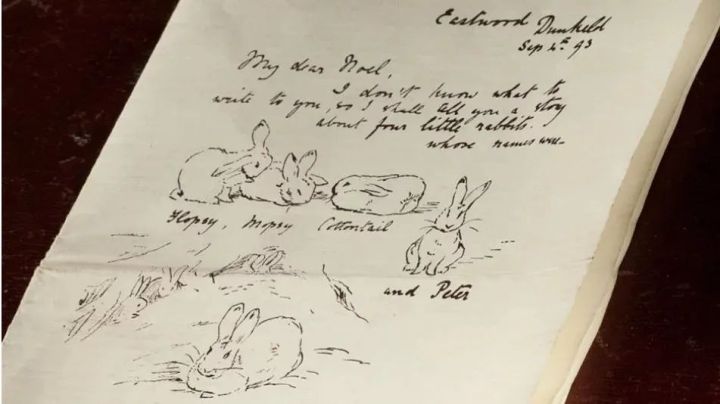 Eastwood Dunkeld
Sep 4th 93
My dear Noel,
I don't know what to
write to you, so I shall tell you a story
about four little rabbits.
whose names were
Flopsy, Mopsy Cottontail
and Peter